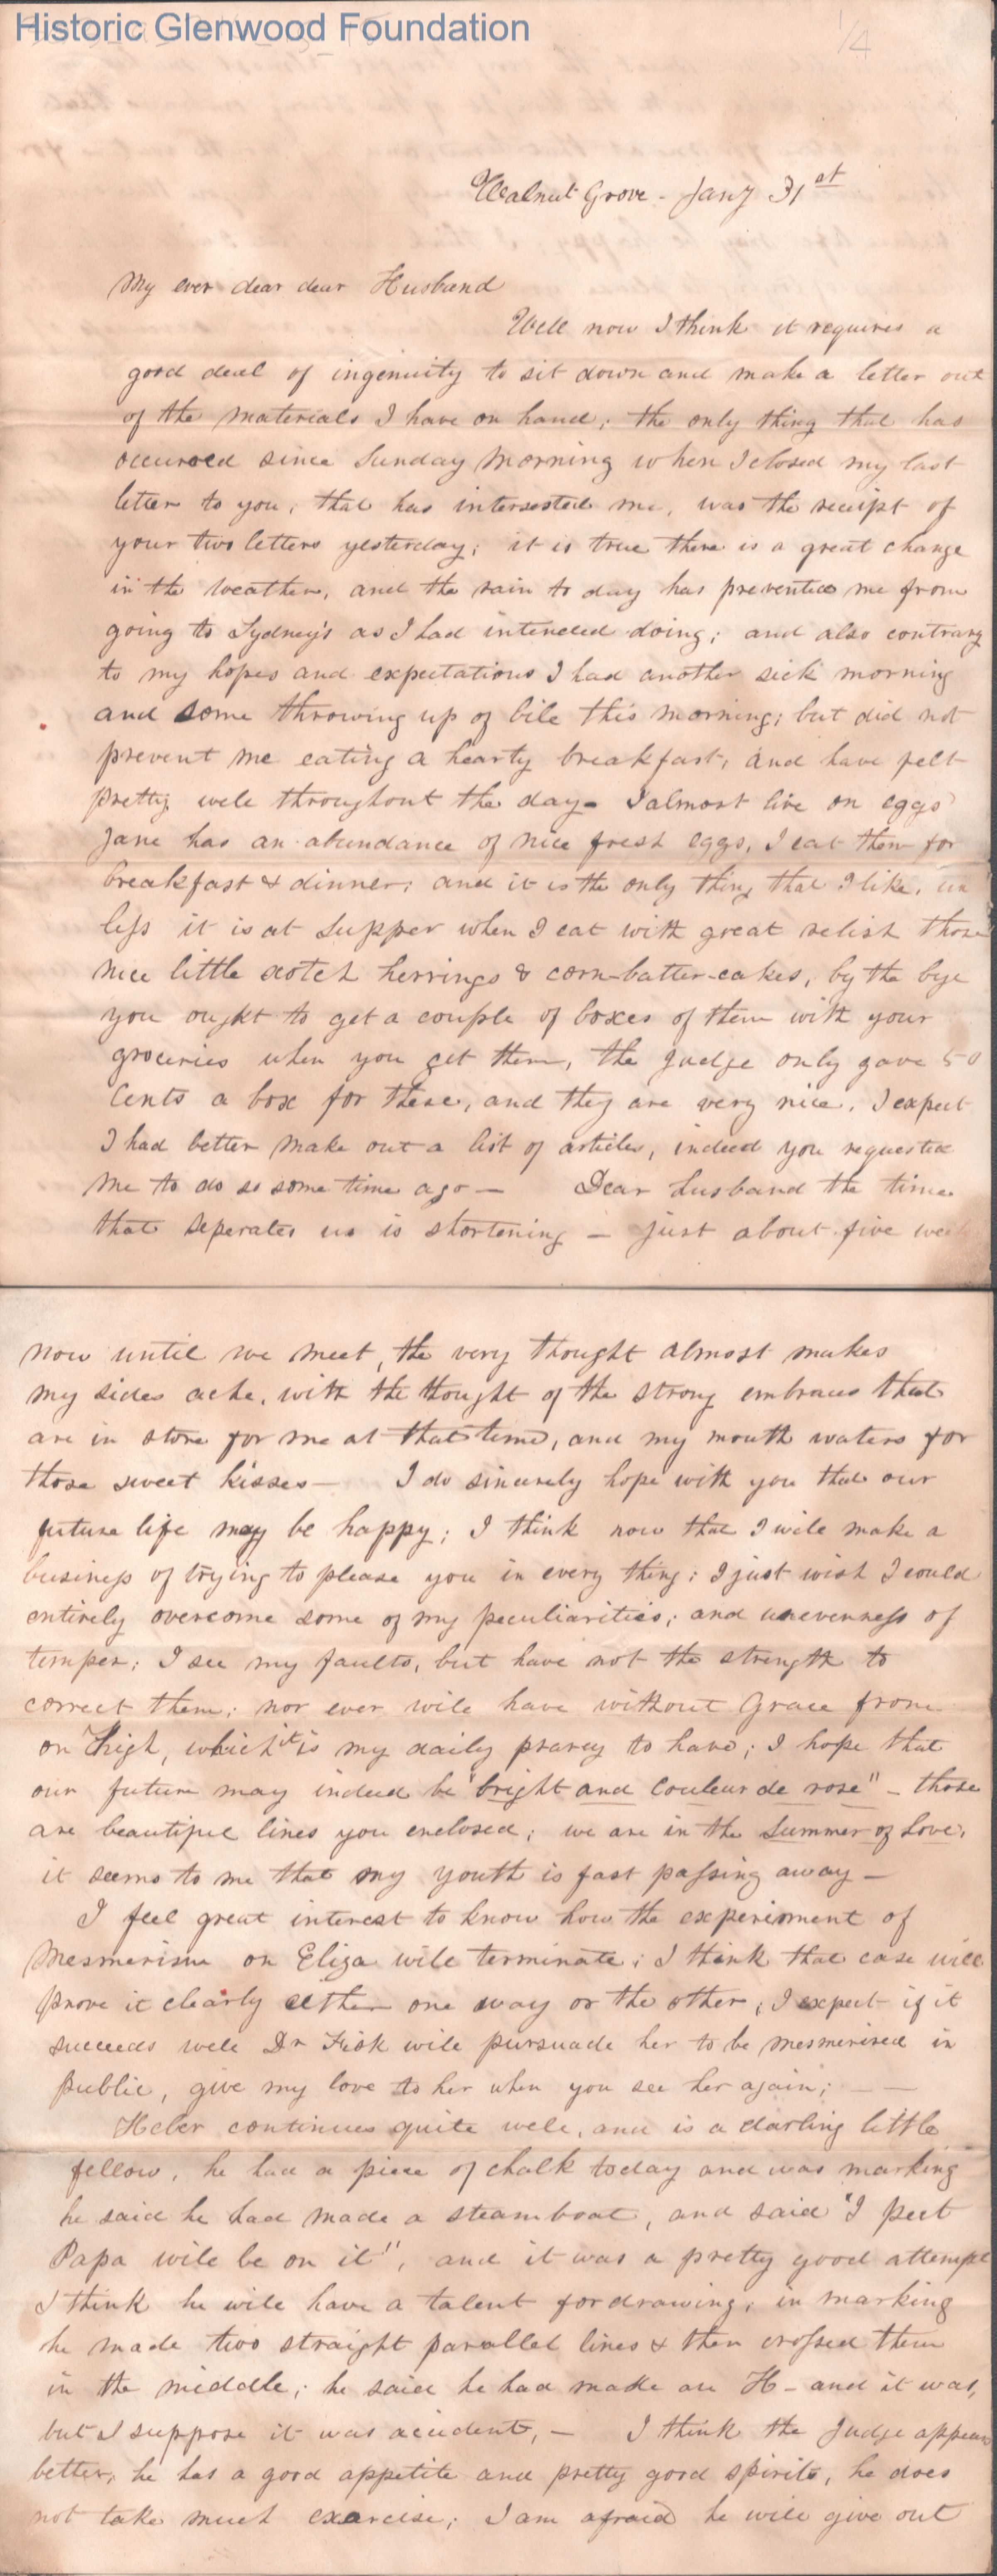 Historic Glenwood Foundation
1/4
Walnut Grove - Jany 31st
My ever dear dear Husband
Well now I think it requires a
good deal of ingenuity to sit down and make a letter out
of the materials I have on hand; the only thing that has
occurred since Sunday Morning when I closed my last
letter to you, that has interested me, was the receipt of
your two letters yesterday; it is true there is a great change
in the weather, and the rain to day has prevented me from
going to Sydney's as I had intended doing; and also contrary
to my hopes and expectations I had another sick morning
and some throwing up of bile this morning; but did not
prevent me eating a hearty breakfast, and have felt
pretty well throughout the day - I almost live on eggs
Jane has an abundance of nice fresh eggs, I eat them for
breakfast & dinner; and it is the only thing that I like, un
less it is at Supper when I eat with great relish those
nice little scotch herrings & corn-batter-cakes, by the bye
you ought to get a couple of boxes of them with your
groceries when you get them, the Judge only gave 50
Cents a box for these, and they are very nice. I expect
I had better make out a list of articles, indeed you requested
me to do so some time ago — Dear husband the time
that seperates us is shortening — just about five week
now until we meet, the very thought almost makes
my sides ache, with the thought of the strong embraces that
are in store for me at that time, and my mouth waters for
those sweet kisses — I do sincerely hope with you that our
future life may be happy; I think now that I will make a
business of trying to please you in every thing; I just wish I could
entirely overcome some of my peculiarities; and unevenness of
temper; I see my faults, but have not the strength to
correct them; nor ever will have without Grace from
on high, which it is my daily prayer to have; I hope that
our future may indeed be "bright and couleur de rose" - those
are beautiful lines you enclosed; we are in the Summer of Love,
it seems to me that my youth is fast passing away —
I feel great interest to know how the experiment of
Mesmerism on Eliza will terminate; I think that case will
prove it clearly either one way or the other, I expect if it
succeeds well Dr Fisk will pursuade her to be mesmerised in
public, give my love to her when you see her again; — —
Heber continues quite well, and is a darling little
fellow, he had a piece of chalk today and was marking
he said he had made a steamboat, and said "I pect
Papa will be on it", and it was a pretty good attempt
I think he will have a talent for drawing, in marking
he made two straight parallel lines & then crossed them
in the middle; he said he had made an H - and it was,
but I suppose it was accident, — I think the Judge appears
better, he has a good appetite and pretty good spirits, he does
not take much exercise; I am afraid he will give out